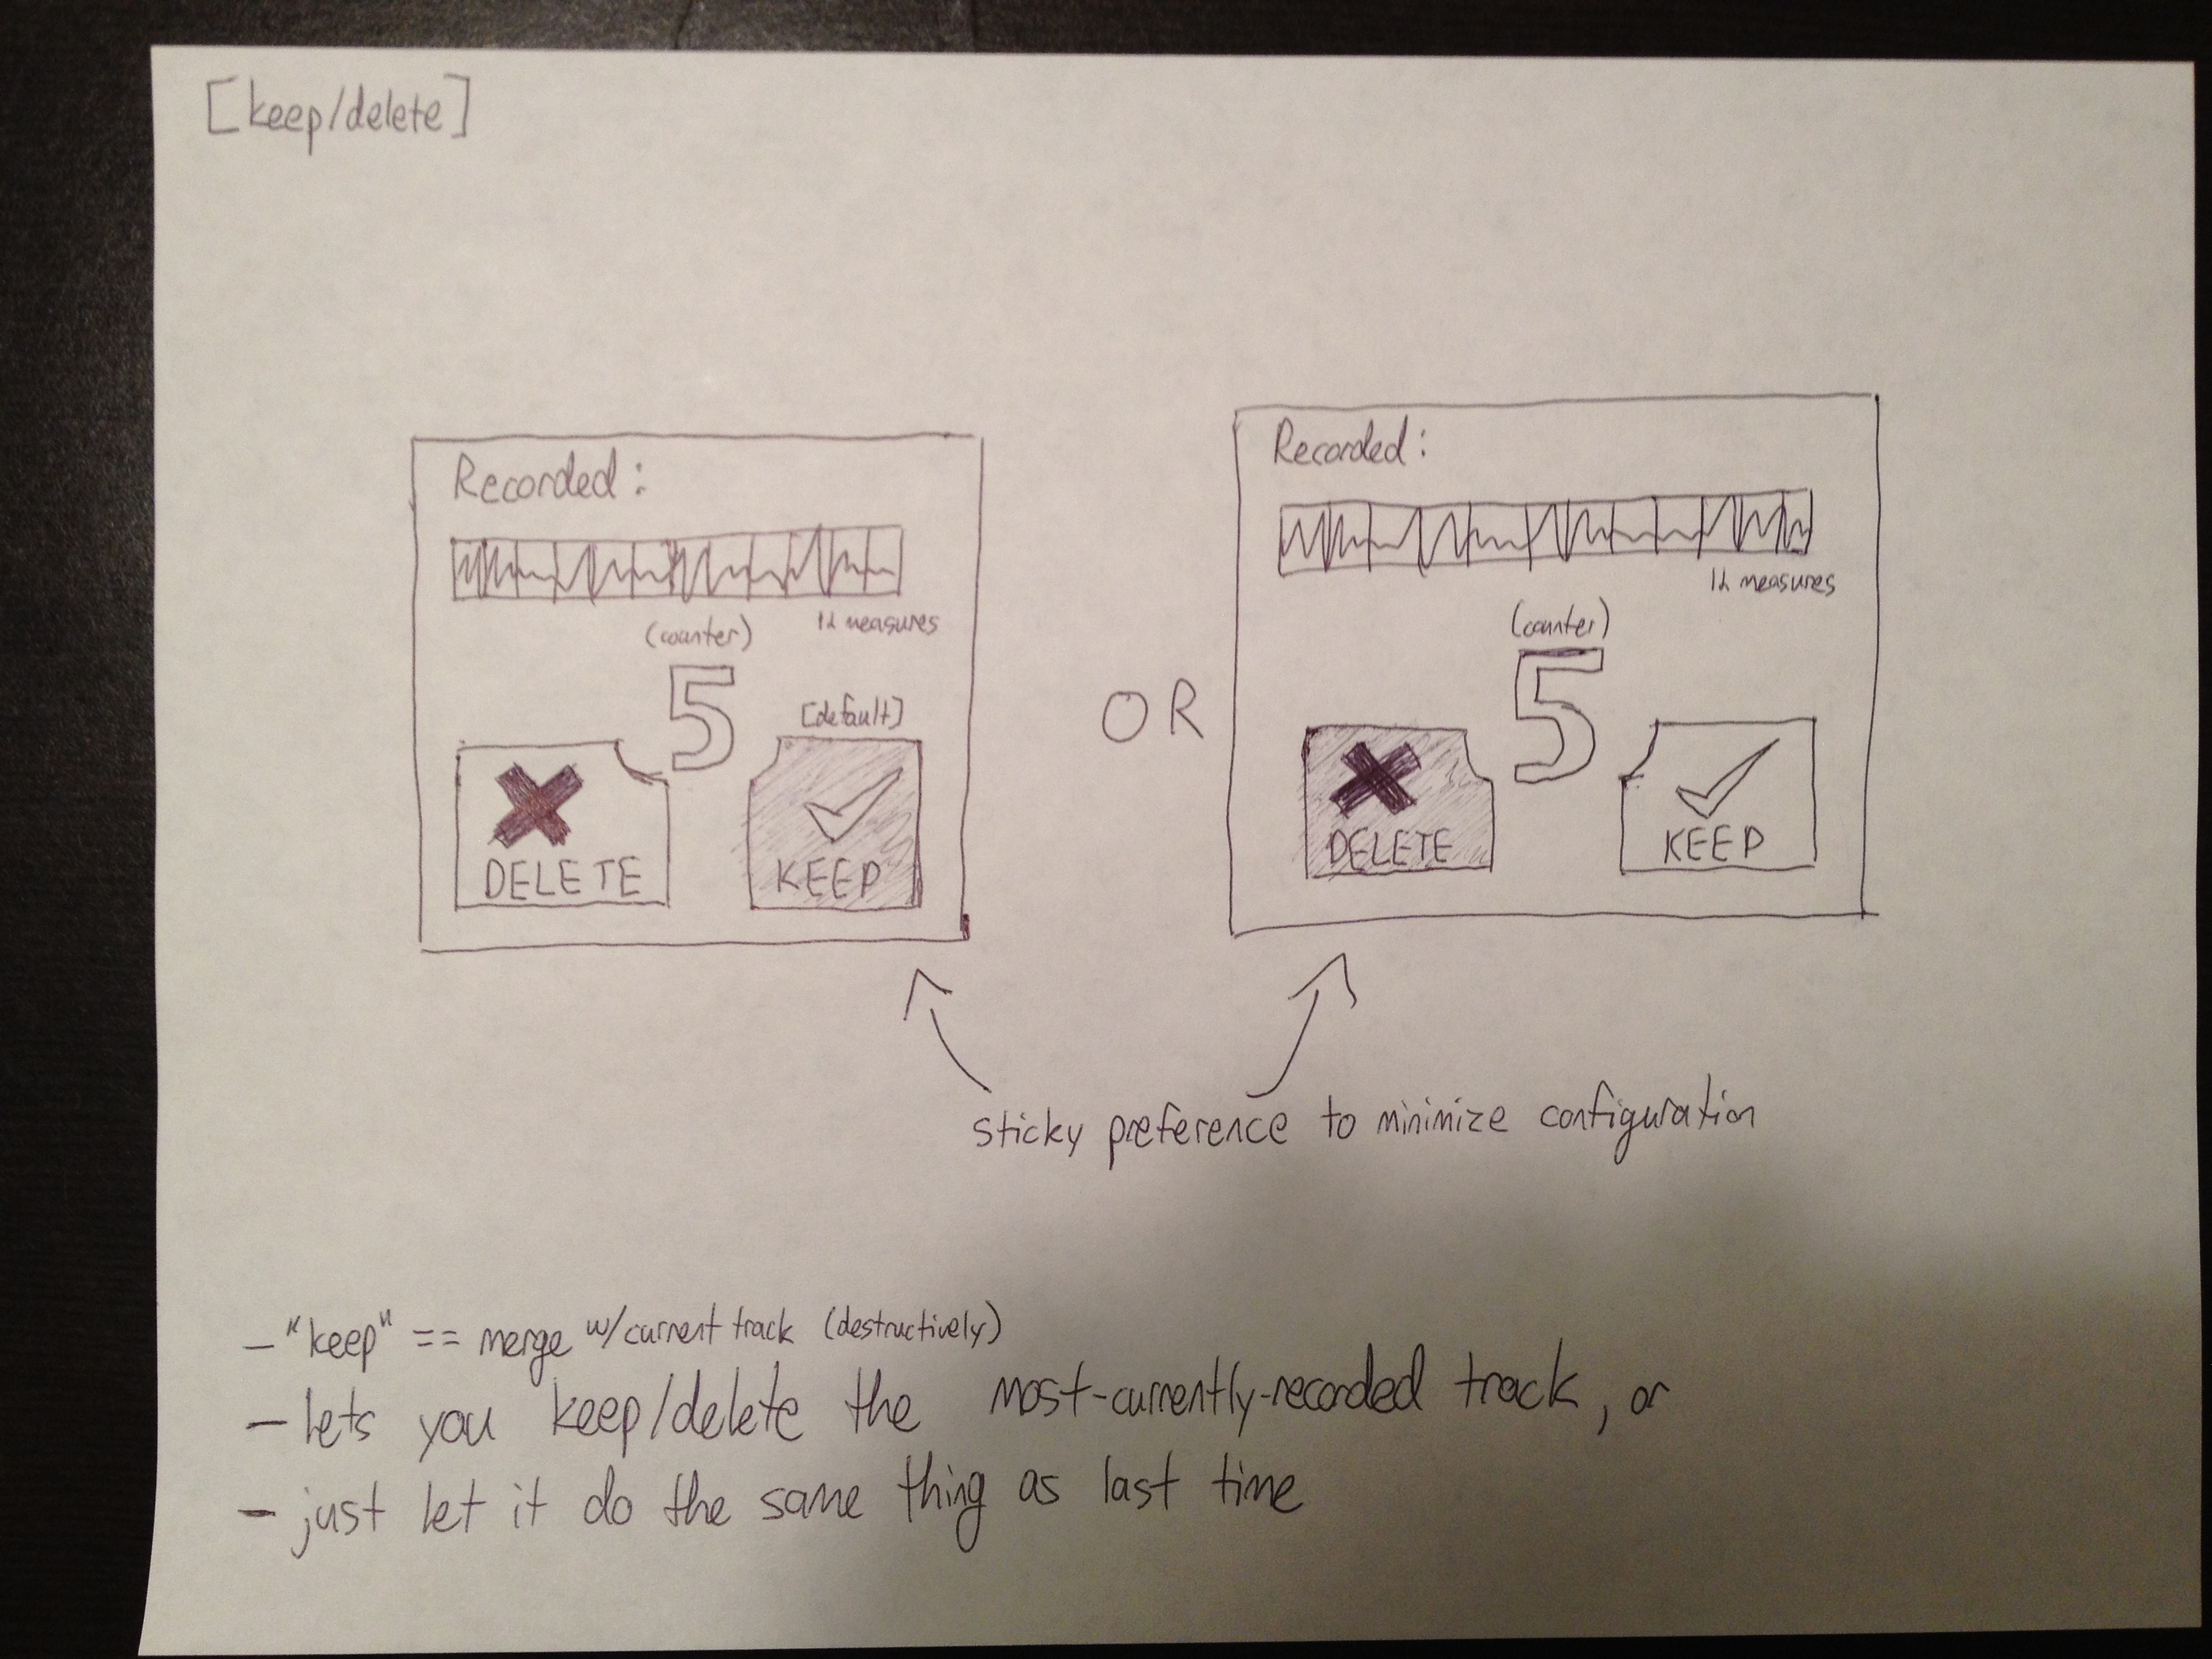 [keep/delete]
Recorded:
(counter)
5
DELETE
[default]
KEEP
OR
Recorded:
(counter)
5
DELETE
KEEP
sticky preference to minimize configuration
- "keep" == merge w/current track (destructively)
- lets you keep/delete the most-currently-recorded track, or
- just let it do the same thing as last time
measures
measures